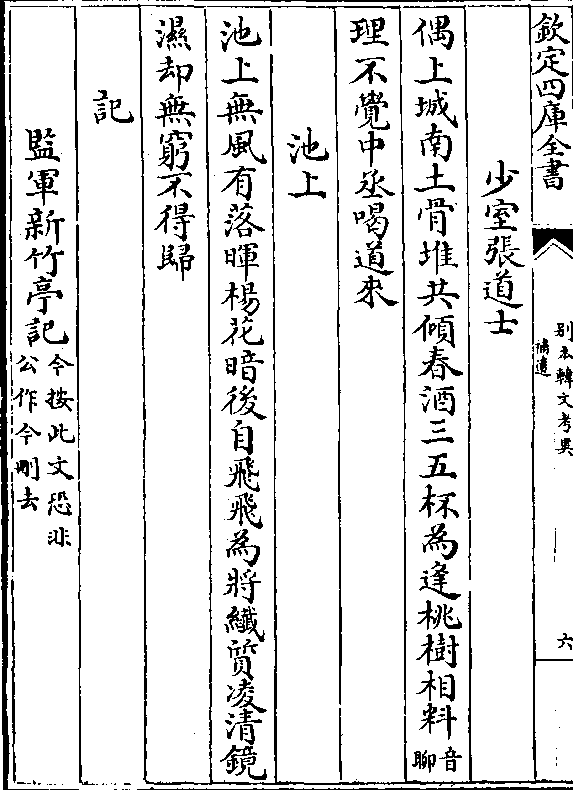 欽定四庫全書
別本韓文考異
補遺
六
少室張道士
偶上城南土骨堆共傾春酒三五杯為逢桃樹相料音聊
理不覺中丞喝道來
池上
池上無風有落暉楊花暗後自飛飛為將纖質凌清鏡
濕却無窮不得歸
記
監軍新竹亭記今按此文恐非
公作今刪去